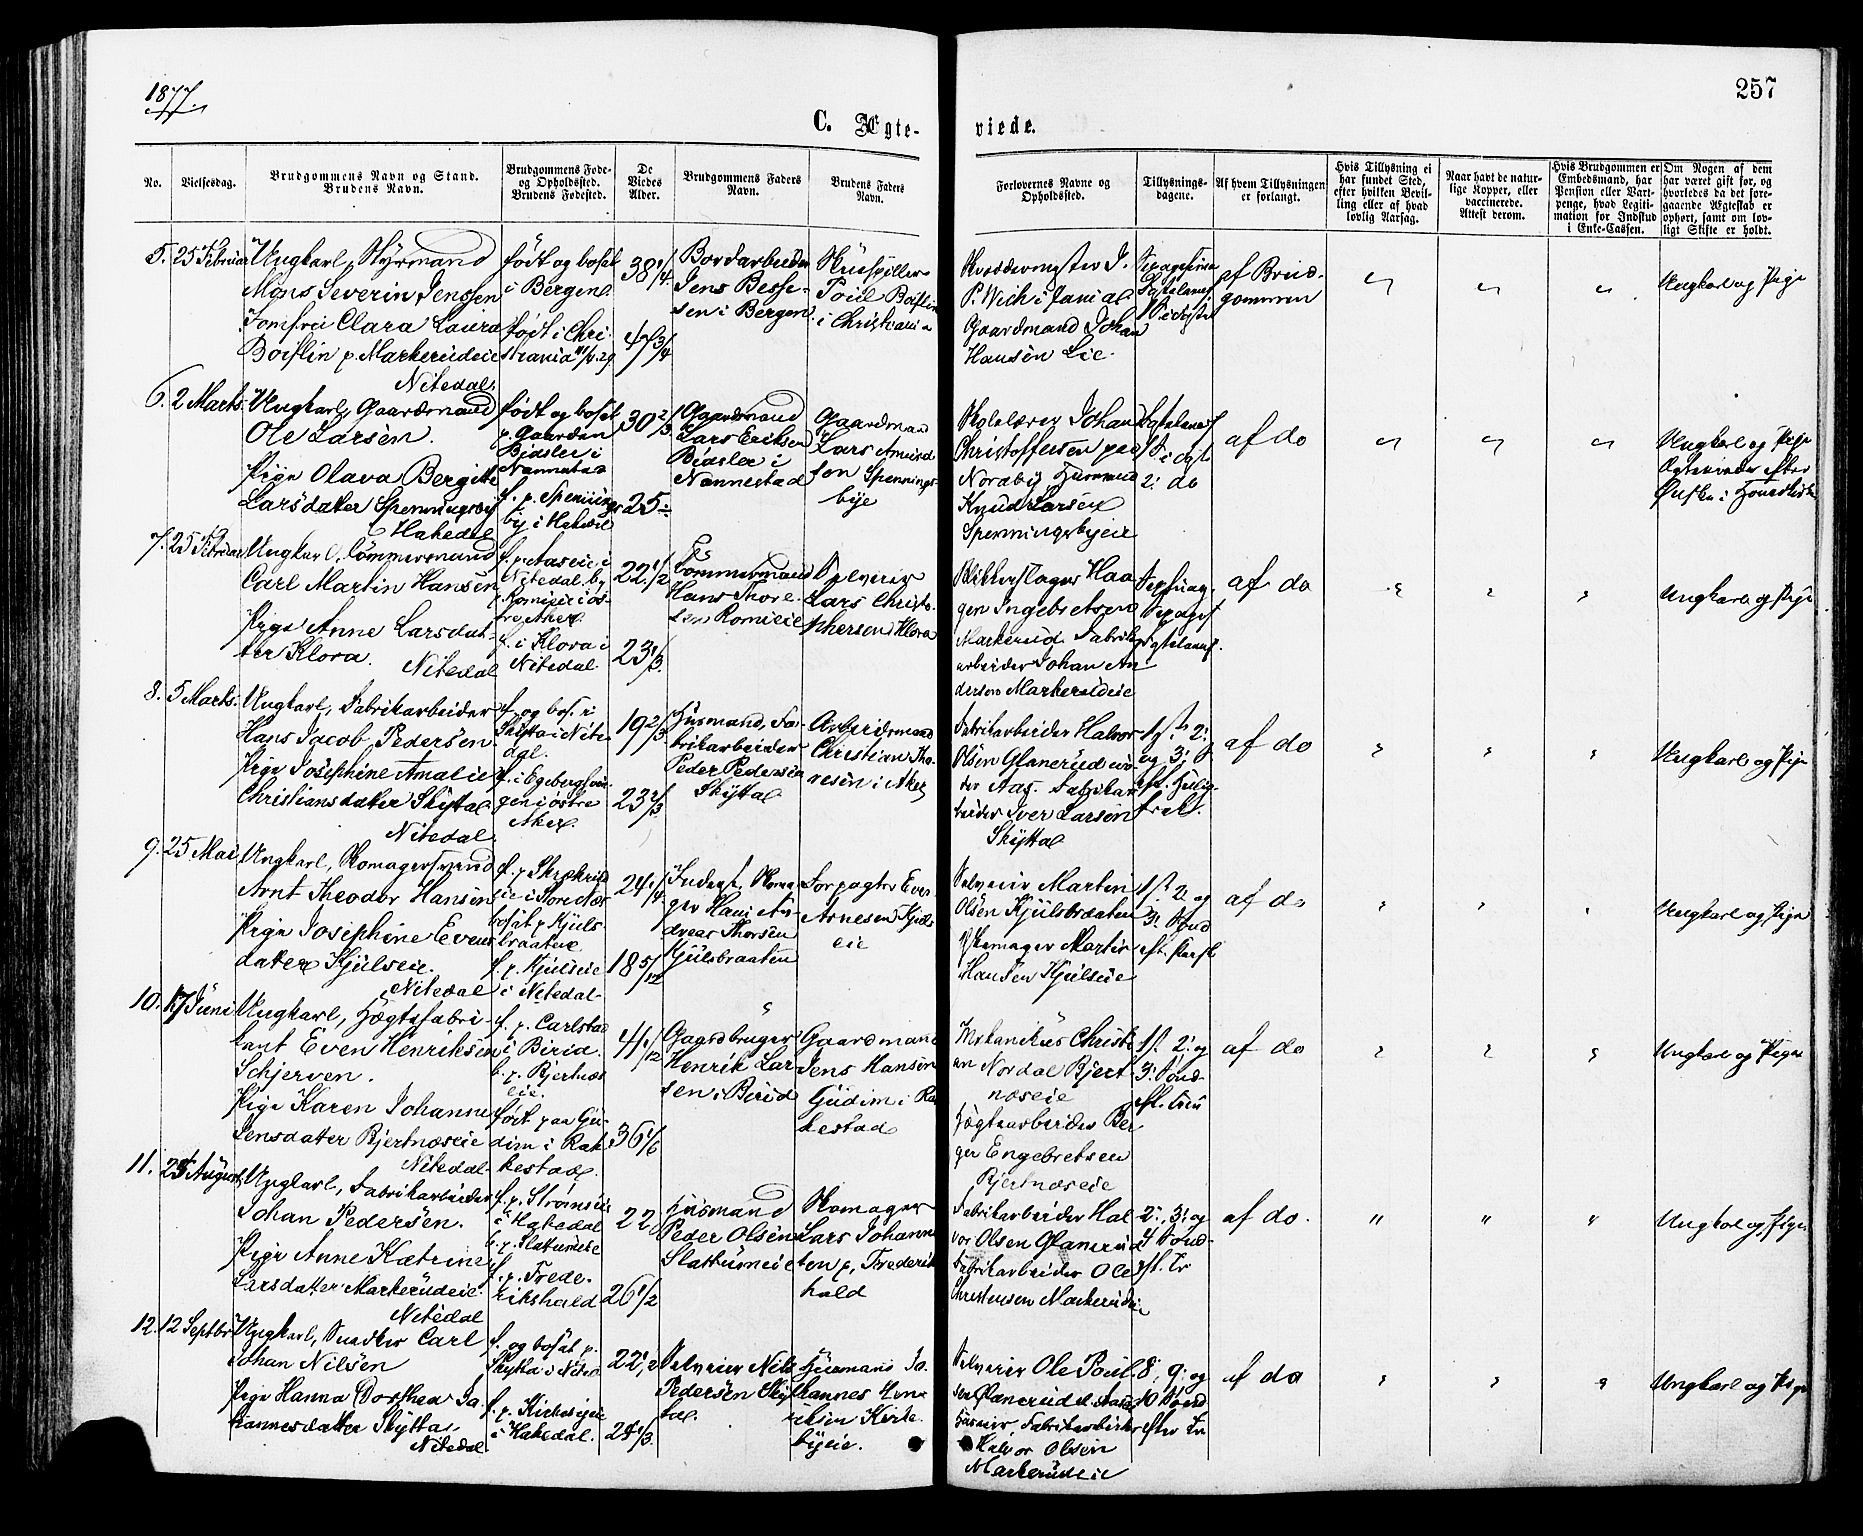 1877.
257
C. Ægte-
viede.
No.
Vielsesdag.
Brudgommens Navn og Stand.
Brudens Navn.
Brudgommens Føde-
og Opholdssted.
Brudens Fødested.
De
Viedes
Alder.
Brudgommens Faders
Navn.
Brudens Faders
Navn.
Forlovernes Navne og
Opholdssted.
Tillysnings-
dagene.
Af hvem Tillysningen
er forlangt.
Hvis Tillysning ei
har fundet Sted,
efter hvilken Bevil-
ling eller af hvad
lovlig Aarsag.
Naar havt de natur-
lige Kopper, eller
vaccinerede.
Attest derom.
Hvis Brudgommen er
Embedsmand, har
Pension eller Vart-
penge, hvad Legiti-
mation for Indskud
i Enke-Cassen.
Om Nogen af dem
har været gift før, og
hvorledes da det fore-
gaaende Ægteskab er
ophørt, samt om lov-
ligt Skifte er holdt.
5.
25 Februar
Ungkarl, Styrmand
Mons Severin Jenssen
Jomfru Clara Laura
Boiflin p. Markerudeie
Nitedal
født og bosat
i Bergen
født i Chri-
stiania 11/4.29
38 1/4
47 3/4
Bordarbeider
Jens
sen i Bergen
Skuespiller
Poul Boiflin
i Christiania
Skræddermester J.
P. Wich
Gaardmand Johan
Hansen Lie
af Brud-
gommen
Ungkarl og Pige
6.
2 Marts
Ungkarl, Gaardmand
Ole Larsen.
Pige Olava Bergitte
Larsdatter Spenningsby
Hakedal
født og bosat
p. Gaarden
Bidsler i
Nannestad
f. p. Spennings-
by i Hakedal
30 2/3
25
Gaardmand
Lars Eriksen
Bidsler i
Nannestad
Gaardmand
Lars Amund
sen Spennings-
bye
Skolelærer Johan
Christoffersen paa
Nordby Husmand
Knud Larsen
Spenningsbyeie
af do
Ungkarl og Pige
7.
25 Februar
Ungkarl, Tømmermand
Carl Martin Hansen
Pige Anne Larsdat-
ter Klora.
Nitedal
f. p. Aaseie i
Nitedal. b.
p. Romieie i øs-
tre Aker
f. i Klora i
Nitedal
22 1/2
23 1/3
Tømmermand
Hans Thore-
sen Romieie
Selveier
Lars Christo-
phersen Klora
Blikkenslager Haa
gen Ingebretsen
Markerud Fabrik
arbeider Johan An
dersen Markerudeie
af do
Ungkarl og Pige
8.
5 Marts.
Ungkarl, Fabrikarbeider
Hans Jacob Pedersen.
Pige Josephine Amalie
Christiansdatter Skyttal
Nitedal
f. og bos. i
Skytta i Nite-
dal.
f. i Egeberg
gen i østre
Aker.
19 2/3
23 2/3
Husmand, Fa-
brikarbeider
Peder Pedersen
Skyttal
Arbeidsmand
Christian Tho-
resen i Aker
Fabrikarbeider Halvor
Olsen Glanerud
Aas. Fabrikar
beider Iver Larsen
Skyttal
1ste 2.
og 3. S
eft. Hellig-
trek.
af do
Ungkarl og Pige
9.
25 Mai
Ungkarl, Skomagersvend
Arnt Theodor Hansen
Pige Josephine Evens
datter Kjulseie.
Nitedal
bosat p. Kjuls-
braaten
f. p. Kjulseie
i Nitedal
24 1/4
18 5/12
Inderst, Skoma-
ger Hans An-
dreas Thorsen
Kjulsbraaten
Forpagter Even
Arnesen Kjuls
eie
Selveier Martin
Olsen Kjulsbraaten
Skomager Martin
Hansen Kjulseie
1st. 2. og
3. Sønd
eft. Paask
af do
Ungkarl og Pige
10.
17 Juni
Ungkarl, Hægtefabri-
kant Even Henriksen
Schjerven.
Pige Karen Johanne
Jensdatter Bjertnæseie
Nitedal
f. p. Carlstad
i Birid.
b. p. Bjertnæs
eie.
født paa Gu-
dim i Rak-
kestad
41 1/12
36 1/6
Gaardbruger
Henrik Lar
sen i Birid
Gaardmand
Jens Hansen
Gudim i Ra
kestad
Mekanikus Christi
an Nordal Bjert
næseie
Hægtearbeider Ber
ger Engebretsen
Bjertnæseie
1st. 2. og
3. Sønd-
eft. Trin
af do
Ungkarl og Pige
11.
25 August
Ungkarl, Fabrikarbeider
Johan Pedersen.
Pige Anne Katrine
Larsdatter Markerudeie.
Nitedal
f. p. Strømseie
i Hakedal
b. p. Slatumeie
f. p. Frede-
rikshald
22
26 1/2
Husmand
Peder Olsen
Slattumeie
Skomager
Lars Johanne
sen p. Frederiks
hald
Fabrikarbeider Hal
vor Olsen Glanerud
Fabrikarbeider Ole
Christensen Markerudeie
2., 3. og
4 Sønd-
eft. Tr
af do.
Ungkarl og Pige
12.
12 Septbr
Ungkarl, Snedker Carl
Johan Nilsen
Pige Hanna Dorthea Jo-
hannesdatter Skytta
Nitedal
f. og bosat p.
Skytta i Nitedal
f. p. Kirkebyeie
i Hakedal.
22 1/2
24 1/3
Selveier Nils
Pedersen Skyt
tal.
Husmand Jo-
hannes Hen
riksen Kirke
byeie.
Selveier Ole Poul
sen Glanerud
Fabrikarbeider
Halvor Olsen
Markerudeie
8, 9. og
10 Sønd
efter Tr
af do
Ungkarl og Pige